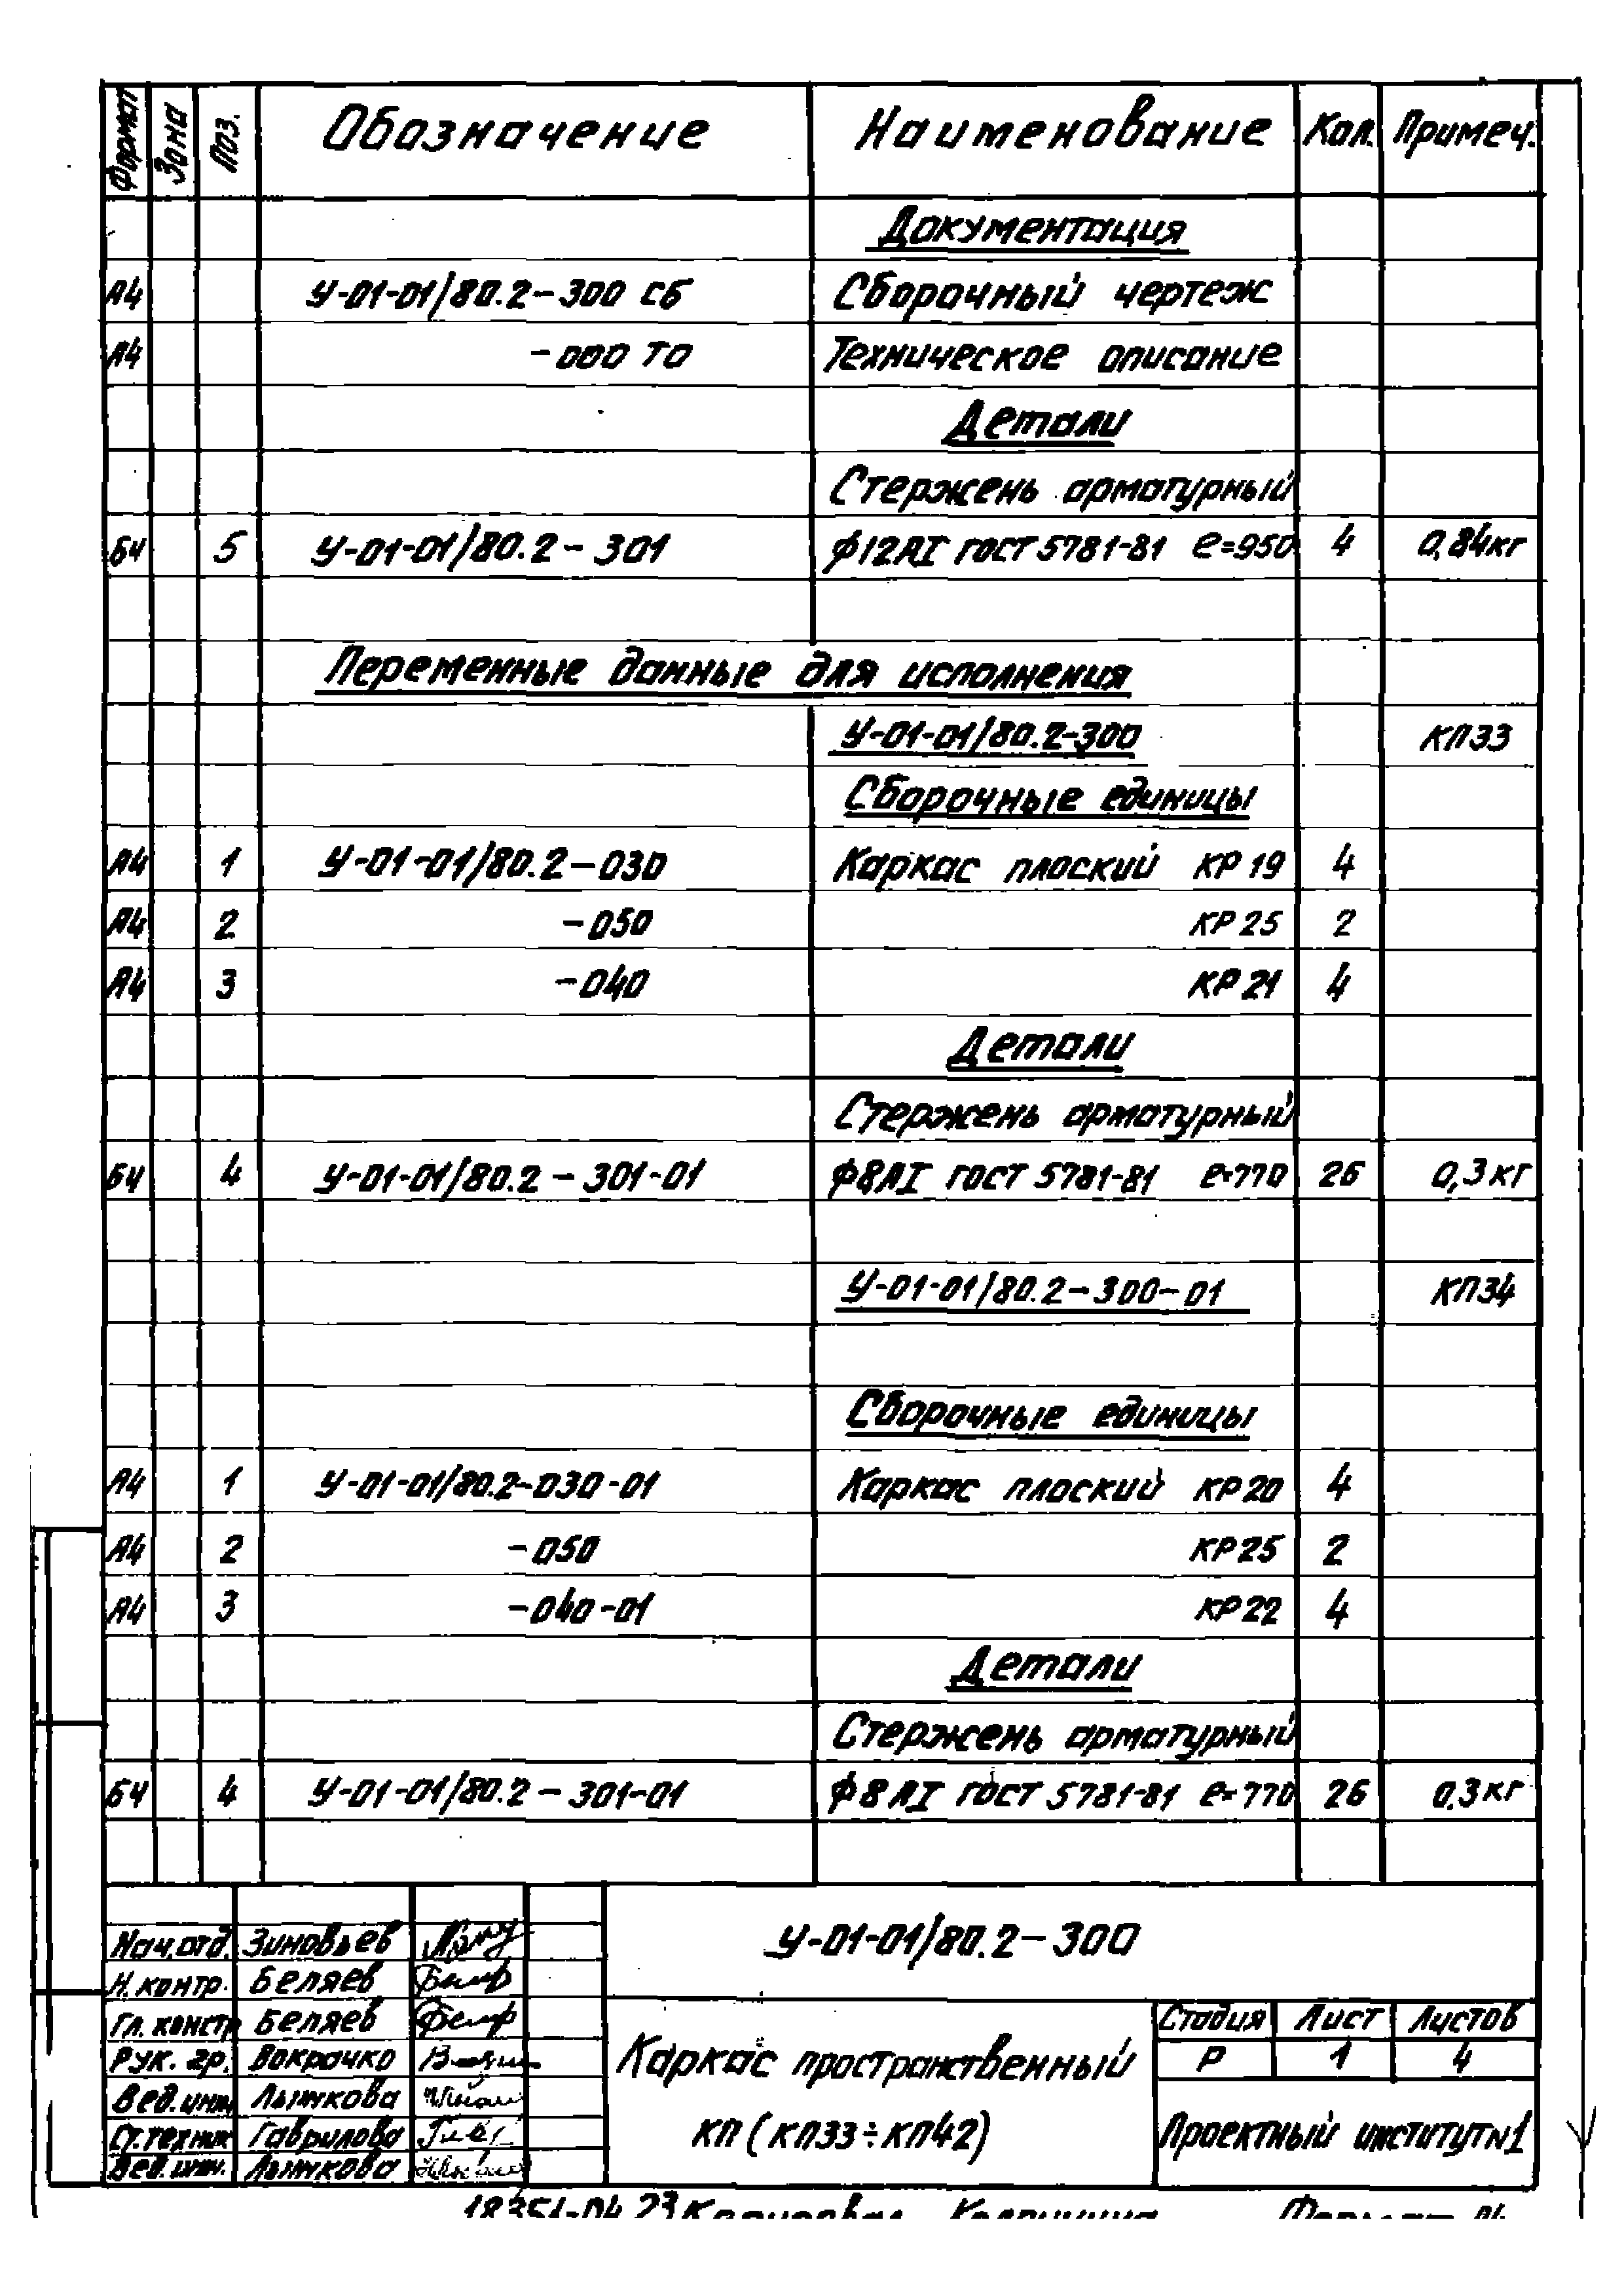 Формат Зона Поз. Обозначение Наименование Кол. Примеч.
Документация
А4 У-01-01/80.2-300 СБ Сборочный чертеж
А4 -000 ТО Техническое описание
Детали
Стержень арматурный
БЧ 5 У-01-01/80.2-301 Ф12АI ГОСТ 5781-81 е=950 4 0,84кг
Переменные данные для исполнения
У-01-01/80.2-300 КП33
Сборочные единицы
А4 1 У-01-01/80.2-030 Каркас плоский КР19 4
А4 2 -050 КР25 2
А4 3 -040 КР21 4
Детали
Стержень арматурный
БЧ 4 У-01-01/80.2-301-01 Ф8АI ГОСТ 5781-81 е=770 26 0,3кг
У-01-01/80.2-300-01 КП34
Сборочные единицы
А4 1 У-01-01/80.2-030-01 Каркас плоский КР20 4
А4 2 -050 КР25 2
А4 3 -040-01 КР22 4
Детали
Стержень арматурный
БЧ 4 У-01-01/80.2-301-01 Ф8АI ГОСТ 5781-81 е=770 26 0.3кг
У-01-01/80.2-300
Нач.отд. Зиновьев
Н.контр. Беляев
Гл.констр Беляев
Рук. гр. Вокрачко
Вед.инж. Лымкова
Ст.техник Гаврилова
Вед.инж. Лымкова
Каркас пространственный
КП (КП33÷КП42)
Стадия Лист Листов
Р 1 4
Проектный институт №1
18351-04 23 Копировал Формат А4